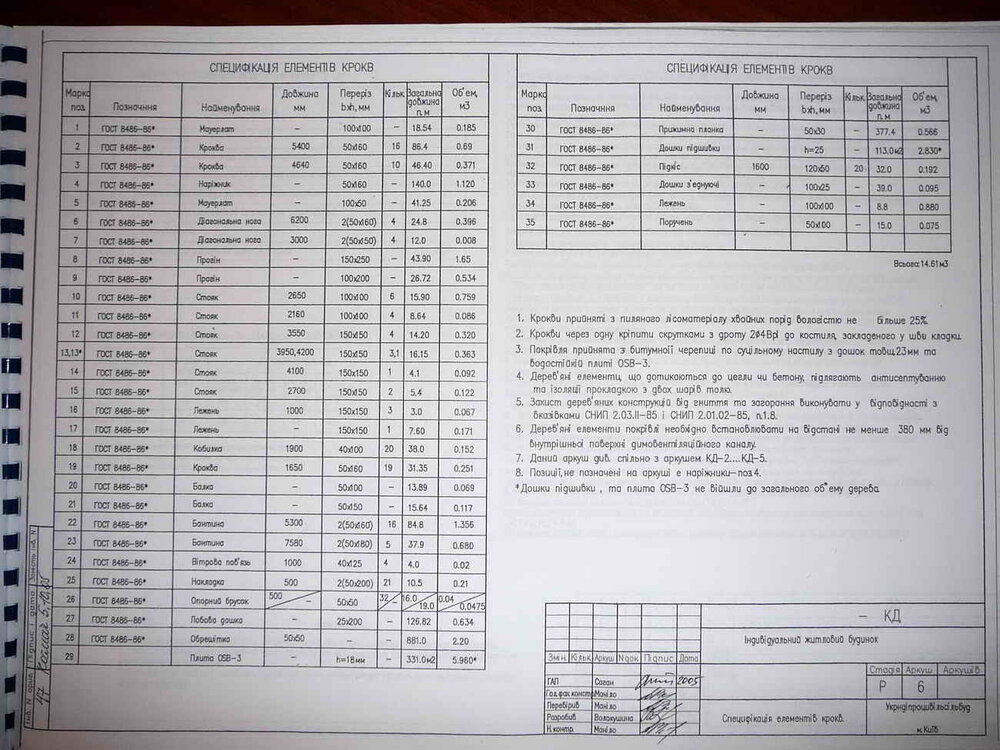 СПЕЦИФІКАЦІЯ ЕЛЕМЕНТІВ КРОКВ
Марка поз. Позначння Найменування Довжина мм Переріз bxh, мм Кільк. Загальна довжина п.м Об'єм, м3
1 ГОСТ 8486-86* Мауерлат – 100x100 – 18.54 0.185
2 ГОСТ 8486-86* Кроква 5400 50x160 16 86.4 0.69
3 ГОСТ 8486-86* Кроква 4640 50x160 10 46.40 0.371
4 ГОСТ 8486-86* Наріжник – 50x160 – 140.0 1.120
5 ГОСТ 8486-86* Мауерлат – 100x50 – 41.25 0.206
6 ГОСТ 8486-86* Діагональна нога 6200 2(50x160) 4 24.8 0.396
7 ГОСТ 8486-86* Діагональна нога 3000 2(50x150) 4 12.0 0.008
8 ГОСТ 8486-86* Прогін – 150x250 – 43.90 1.65
9 ГОСТ 8486-86* Прогін – 100x200 – 26.72 0.534
10 ГОСТ 8486-86* Стояк 2650 100x100 6 15.90 0.759
11 ГОСТ 8486-86* Стояк 2160 100x100 4 8.64 0.086
12 ГОСТ 8486-86* Стояк 3550 150x150 4 14.20 0.320
13,13* ГОСТ 8486-86* Стояк 3950,4200 150x150 3,1 16.15 0.363
14 ГОСТ 8486-86* Стояк 4100 150x150 1 4.1 0.092
15 ГОСТ 8486-86* Стояк 2700 150x150 2 5.4 0.122
16 ГОСТ 8486-86* Лежень 1000 150x150 3 3.0 0.067
17 ГОСТ 8486-86* Лежень – 150x150 1 7.60 0.171
18 ГОСТ 8486-86* Кобилка 1900 40x100 20 38.0 0.152
19 ГОСТ 8486-86* Кроква 1650 50x160 19 31.35 0.251
20 ГОСТ 8486-86* Балка – 50x100 – 13.89 0.069
21 ГОСТ 8486-86* Балка – 50x150 – 15.64 0.117
22 ГОСТ 8486-86* Бантина 5300 2(50x160) 16 84.8 1.356
23 ГОСТ 8486-86* Бантина 7580 2(50x180) 5 37.9 0.680
24 ГОСТ 8486-86* Вітрова пов'язь 1000 40x125 4 4.0 0.02
25 ГОСТ 8486-86* Накладка 500 2(50x200) 21 10.5 0.21
26 ГОСТ 8486-86* Опорний брусок 500/– 50x50 32/– 16.0/19.0 0.04/0.0475
27 ГОСТ 8486-86* Лобова дошка – 25x200 – 126.82 0.634
28 ГОСТ 8486-86* Обрешітка 50x50 – – 881.0 2.20
29 Плита OSB-3 – h=18мм – 331.0м2 5.980*
СПЕЦИФІКАЦІЯ ЕЛЕМЕНТІВ КРОКВ
Марка поз. Позначння Найменування Довжина мм Переріз bxh, мм Кільк. Загальна довжина п.м Об'єм, м3
30 ГОСТ 8486-86* Прижимна планка – 50x30 – 377.4 0.566
31 ГОСТ 8486-86* Дошки підшивки – h=25 – 113.0м2 2.830*
32 ГОСТ 8486-86* Підкіс 1600 120x50 20 32.0 0.192
33 ГОСТ 8486-86* Дошки з'еднуючі – 100x25 – 39.0 0.095
34 ГОСТ 8486-86* Лежень – 100x100 – 8.8 0.880
35 ГОСТ 8486-86* Поручень – 50x100 – 15.0 0.075
Всього: 14.61м3
1. Крокви прийняті з пиляного лісоматеріалу хвойних порід вологістю не більше 25%.
2. Крокви через одну кріпити скрутками з дроту 2Ø4ВрІ до костиля, закладеного у шви кладки.
3. Покрівля прийнята з битумної черепиці по суцільному настилу з дошок товщ.23мм та
водостійкій плиті OSB-3.
4. Дерев'яні елементи, що дотикаються до цегли чи бетону, підлягають антисептуванню
та ізоляції прокладкою з двох шарів толю.
5. Захист дерев'яних конструкцій від гниття та загорання виконувати у відповідності з
вказівками СНИП 2.03.II-85 і СНИП 2.01.02-85, п.1.8.
6. Дерев'яні елементи покрівлі необхідно встановлювати на відстані не менше 380 мм від
внутрішньої поверхні димовентіляційного каналу.
7. Даний аркуш див. спільно з аркушем КД-2....КД-5.
8. Позиції, не позначені на аркуші е наріжники-поз.4.
*Дошки підшивки , та плита OSB-3 не війшли до загального об'ему дерева.
– КД
Індивідуальний житловий будинок
Змін. Кільк. Аркуш Nдок Підпис Дата
Стадія Аркуш Аркушів
Р 6
ГАП Саган 2005
Гол.фах.констр. Маніло
Перевірив Маніло
Розробив Волокушина
Н.контр. Маніло
Специфікація елементів крокв.
Укрндіпроцивільсільбуд
м.Київ
Підпис і дата